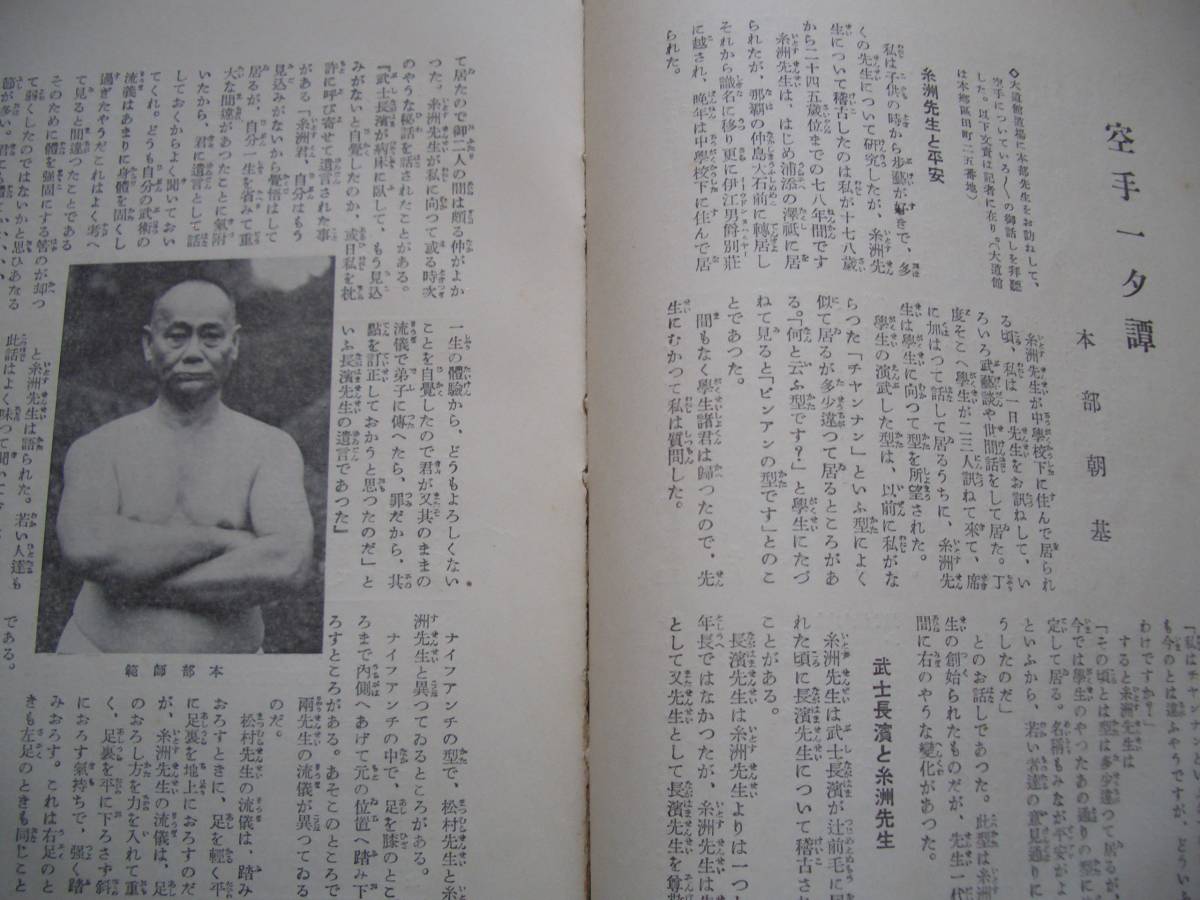 空手一夕譚
本部朝基
◇大道館道場に本部先生をお訪ねして、
空手についていろ〱の御話しを拜聽
した。以下文責は記者に在り。(大道館
は本郷區田町二五番地)
私は子供の時から歩藝が好きで、多
くの先生について研究したが、糸洲先
生について稽古したのは私が十七八歳
から二十四五歳位までの七八年間です
糸洲先生は、はじめ浦添の澤岻に居
られたが、那覇の仲島大石前に轉居し
それから識名に移り更に伊江男爵別莊
に越され、晩年は中學校下に住んで居
られた。
糸洲先生と平安
糸洲先生が中學校下に住んで居られ
る頃、私は一日先生をお訊ねして、い
ろいろ武藝談や世間話をして居た。丁
度そこへ學生が二三人訊ねて來て、席
に加はつて話して居るうちに、糸洲先
生は學生に向つて型を所望された。
學生の演武した型は、以前に私がな
らつた「チャンナン」といふ型によく
似て居るが多少違つて居るところがあ
る。「何と云ふ型です?」と學生にたづ
ねて見ると「ピンアンの型です」とのこ
とであつた。
間もなく學生諸君は歸つたので、先
生にむかつて私は質問した。
「私はチャンナンと
も今のとは違ふやうですが、どうい
わけですか?」
すると糸洲先生は
「その頃とは型は多少違つて居るが、
今では學生のやつたあの通りの型に
定して居る。名稱もみなが平安がよ
といふから、若い者達の意見通りに
うしたのだ」
とのお話しであつた。此型は糸洲
生の創始られたものだが、先生一代
間に右のやうな變化があつた。
武士長濱と糸洲先生
糸洲先生は武士長濱が辻前毛に居
れた頃に長濱先生について稽古され
ことがある。
長濱先生は糸洲先生よりは一つし
年長ではなかつたが、糸洲先生は先
として又先生として長濱先生を尊敬
て居たので御二人の間は頗る仲がよか
つた。糸洲先生が私に向つて或る時次
のやうな秘話を話されたことがある。
『武士長濱が病床に臥して、もう見込
みがないと自覺したのか、或日私を枕
許に呼び寄せて遺言された事
がある。「糸洲君、自分はもう
見込みがないから覺悟はして
居るが、自分一生を省みて重
大な間違があつたことに氣附
いたから、君に遺言として話
しておくからよく聞いておい
てくれ。どうも自分の武術の
流儀はあまりに身體を固くし
過ぎたやうだこれはよく考へ
て見ると間違つたことである
そのために體を強固にする筈のが却つ
て弱くしたのではないかと思ひあたる
節が多い。君に
一生の體驗から、どうもよろしくない
ことを自覺したので君が又其のままの
流儀で弟子に傳へたら、罪だから、其
點を訂正しておかうと思つたのだ」と
いふ長濱先生の遺言であつた』
と糸洲先生は語られた。若い人達も
此話はよく味つて聞いて
である。
本部師範
ナイフアンチの型で、松村先生と糸
洲先生と異つてゐるところがある。
ナイフアンチの中で、足を膝のとこ
ろまで内側へあげて元の位置へ踏み下
ろすところがある。あそこのところで
兩先生の流儀が異つてゐる
のだ。
松村先生の流儀は、踏み
おろすときに、足を輕く平
に足裏を地上におろすのだ
が、糸洲先生の流儀は、足
のおろし方を力を入れて重
く、足裏を平に下ろさず斜
におろす氣持ちで、強く踏
みおろす。これは右足のと
きも左足のときも同じこと